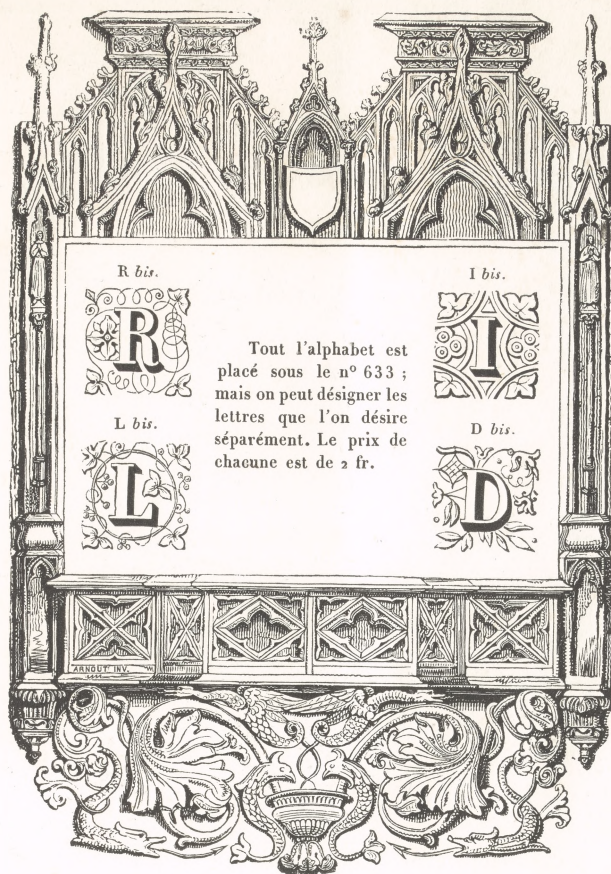 R bis.
R
I bis.
I
Tout l'alphabet est
placé sous le nº 633 ;
mais on peut désigner les
lettres que l'on désire
séparément. Le prix de
chacune est de 2 fr.
L bis.
L
D bis.
D
ARNOUT. INV.